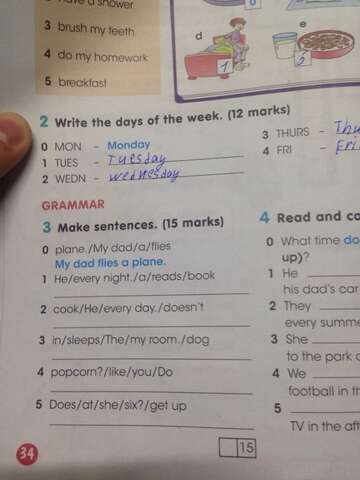 2 have a shower
3 brush my teeth
4 do my homework
5 breakfast
d
1
e
5
2 Write the days of the week. (12 marks)
0 MON - Monday
1 TUES - Tuesday
2 WEDN - wednesday
3 THURS - Thu
4 FRI - Fri
GRAMMAR
3 Make sentences. (15 marks)
0 plane./My dad/a/flies
My dad flies a plane.
1 He/every night./a/reads/book
2 cook/He/every day./doesn't
3 in/sleeps/The/my room./dog
4 popcorn?/like/you/Do
5 Does/at/she/six?/get up
15
4 Read and co
0 What time do
up)?
1 He
his dad's car
2 They
every summe
3 She
to the park
4 We
football in th
5
TV in the aft
34